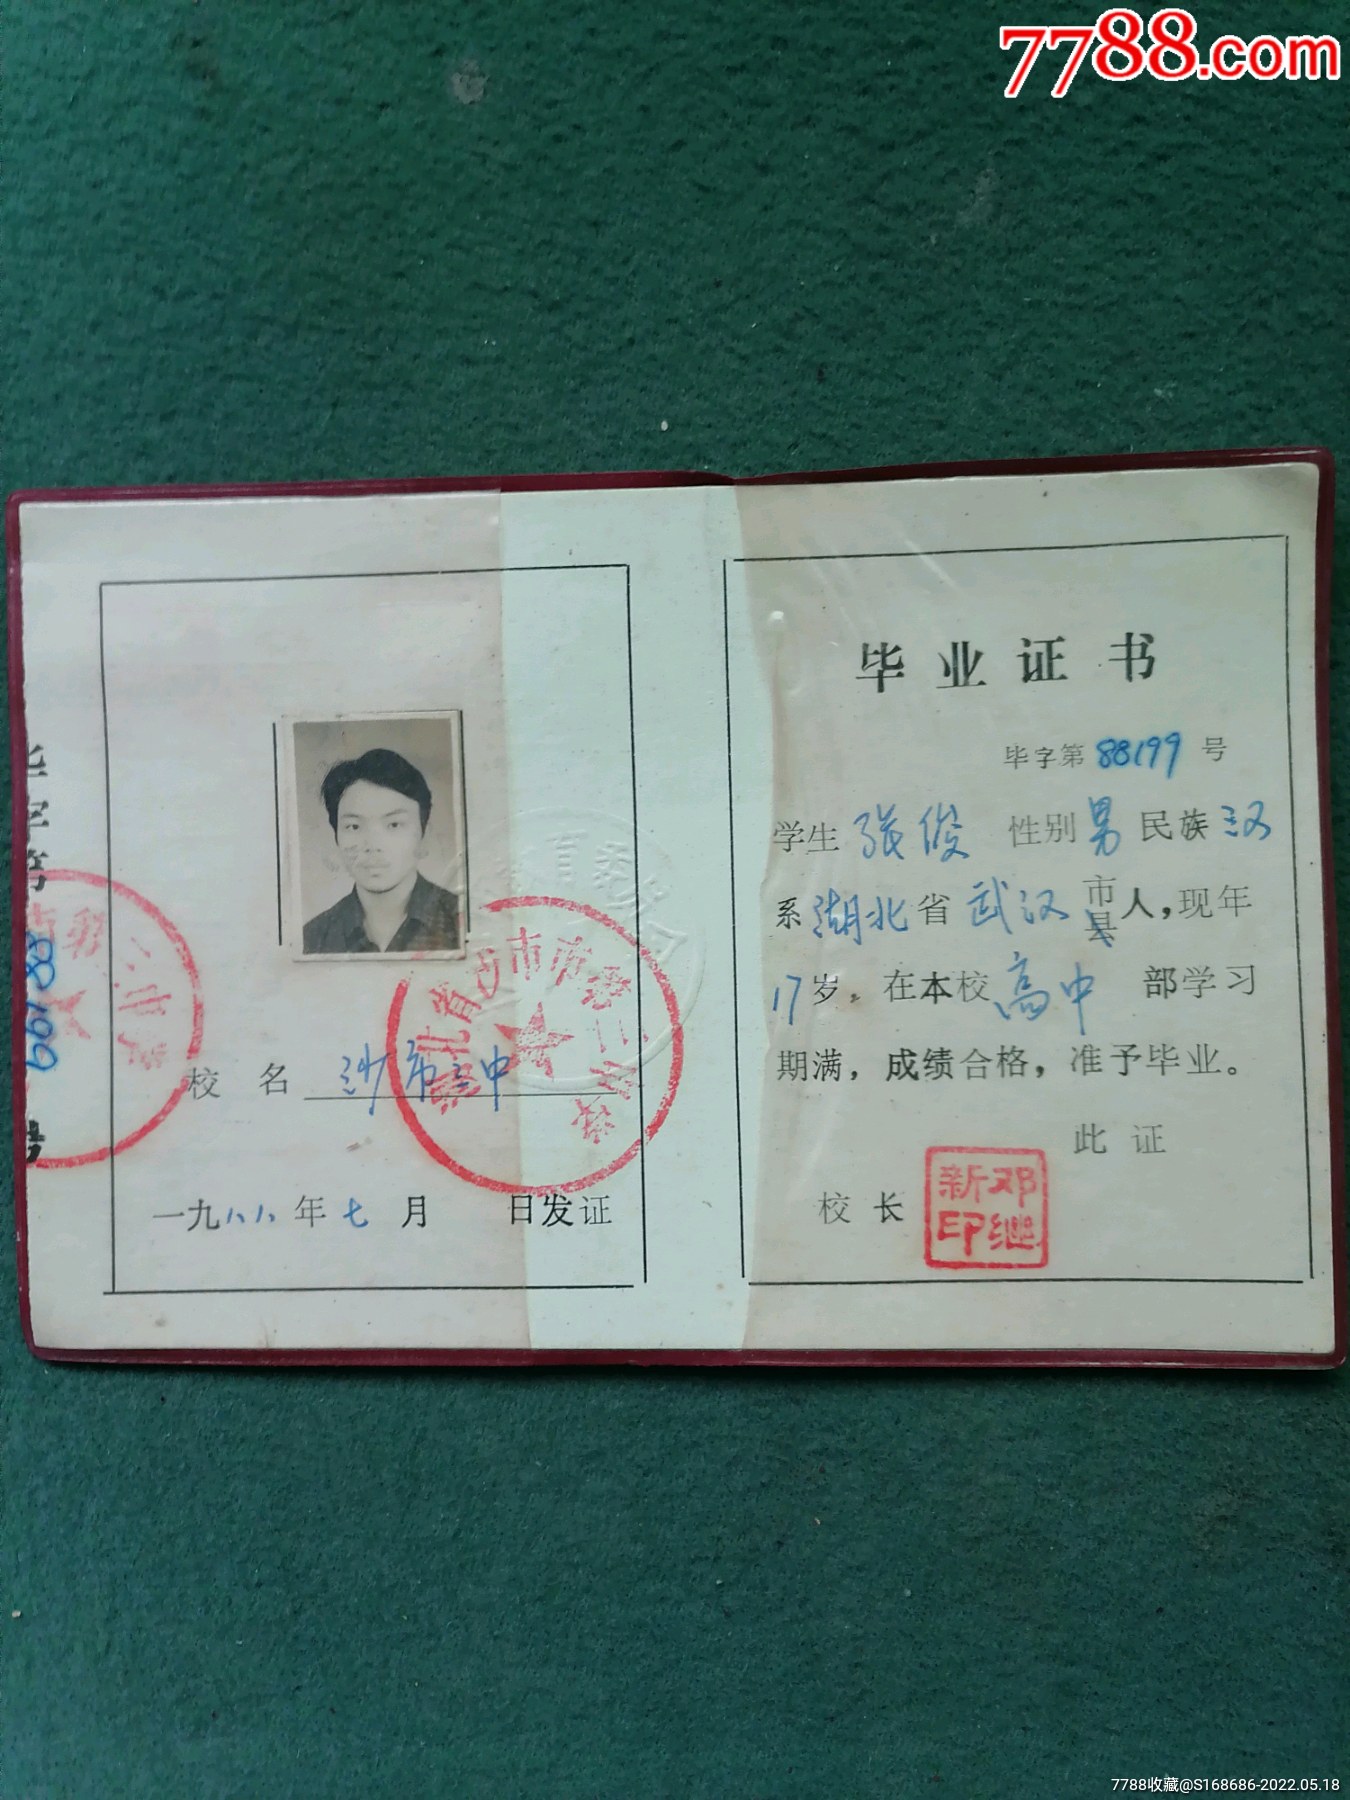 7788.com
毕字第
88199
号
校名 沙市三中
一九八八年七月 日发证
毕业证书
毕字第 88199 号
学生 张俊 性别 男 民族 汉
系 湖北 省 武汉 市县 人，现年
17 岁。在本校 高中 部学习
期满，成绩合格，准予毕业。
此证
校长 邓继新印
7788收藏@S168686-2022.05.18